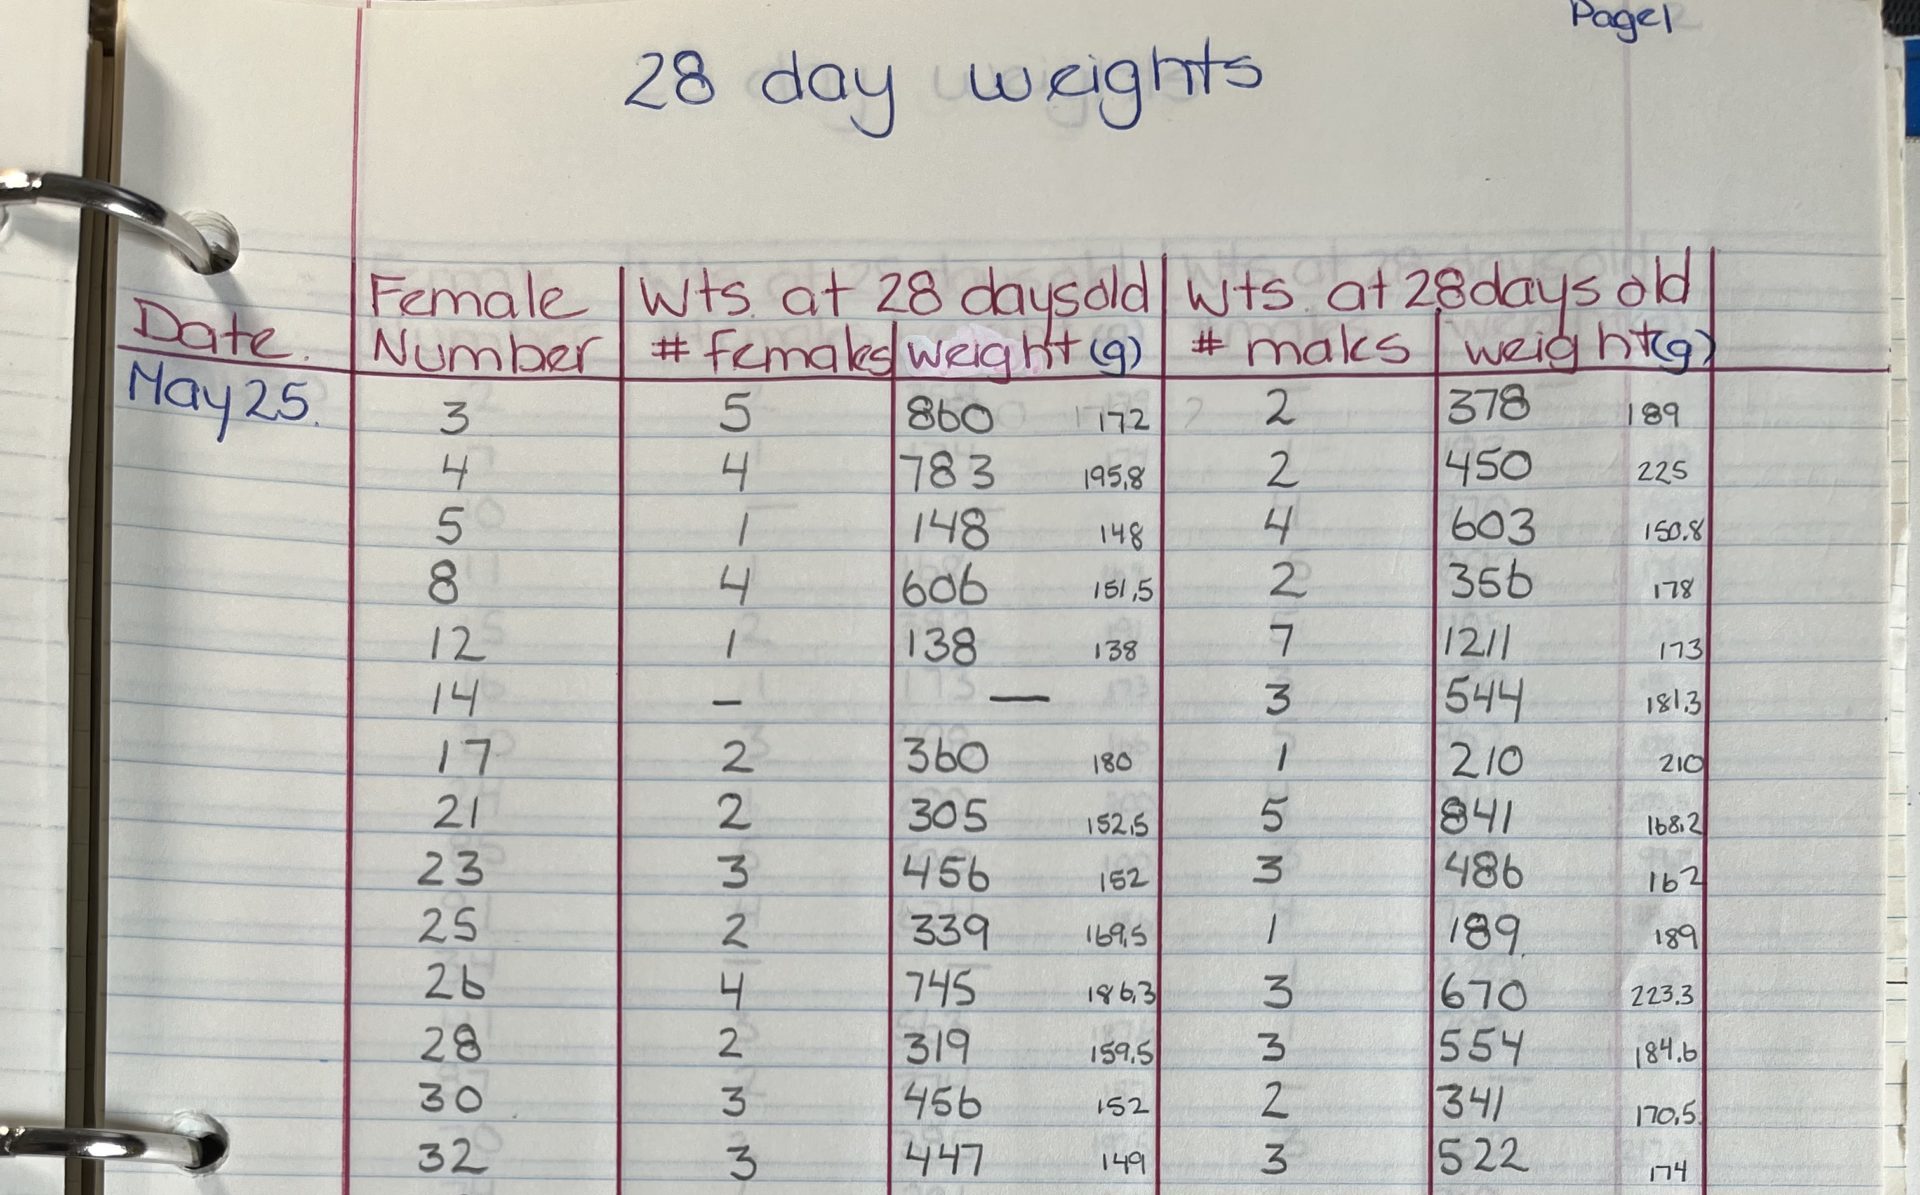 Page 1
28 day weights
Date. Female Number Wts. at 28 days old # females weight (g) Wts. at 28 days old # males weight (g)
May 25. 3 5 860 172 2 378 189
4 4 783 195.8 2 450 225
5 1 148 148 4 603 150.8
8 4 606 151.5 2 356 178
12 1 138 138 7 1211 173
14 - — 3 544 181.3
17 2 360 180 1 210 210
21 2 305 152.5 5 841 168.2
23 3 456 152 3 486 162
25 2 339 169.5 1 189 189
26 4 745 186.3 3 670 223.3
28 2 319 159.5 3 554 184.6
30 3 456 152 2 341 170.5
32 3 447 149 3 522 174